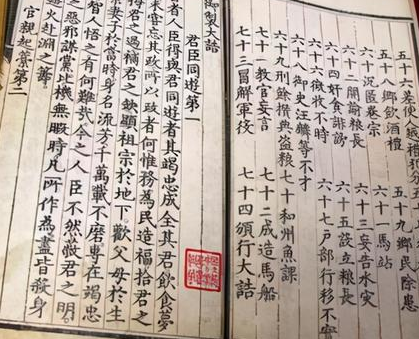 差使人
禮
鄉民除患
五十八鄉飲酒禮
六十一馬站
六十沉匿卷宗
六十三妄告水災
六十二開諭糧長
六十五設立糧長
六十四奸貪誹謗
六十七戶部行移不實
六十六徵收不時
六十八御史汪麟等不才
六十九刑餘攢典盜糧
七十和州魚課
七十一教官妄言
七十二成造馬船
七十三冒解軍役
七十四頒行大誥
御製大誥
君臣同遊第一
者人臣得與君同遊者其竭忠成全其君飲食夢
嘗忘其政所以政者何惟務為民造福拾君之
君之過補君之缺顯祖宗於地下歡父母於生
妻子於當時身名流芳千萬載不磨專在竭忠
智人悟之有何難哉今之人臣不然蔽君之明
之惡邪謀黨比機無暇時凡所作為盡皆殺身
趨火赴淵之籌
官親起藁第二